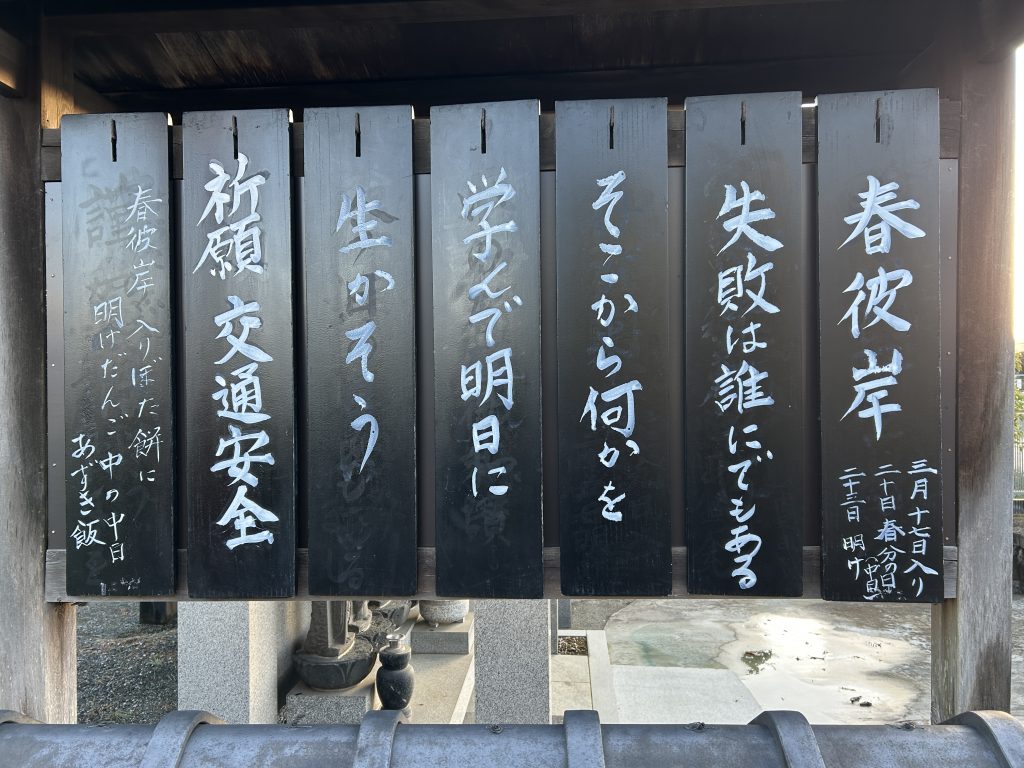 春彼岸
三月十七日入り
二十日 春分の日
中日
二十三日 明け
失敗は誰にでもある
そこから何かを
学んで明日に
生かそう
祈願 交通安全
春彼岸 入りぼた餅に
明けだんご中の中日
あずき飯